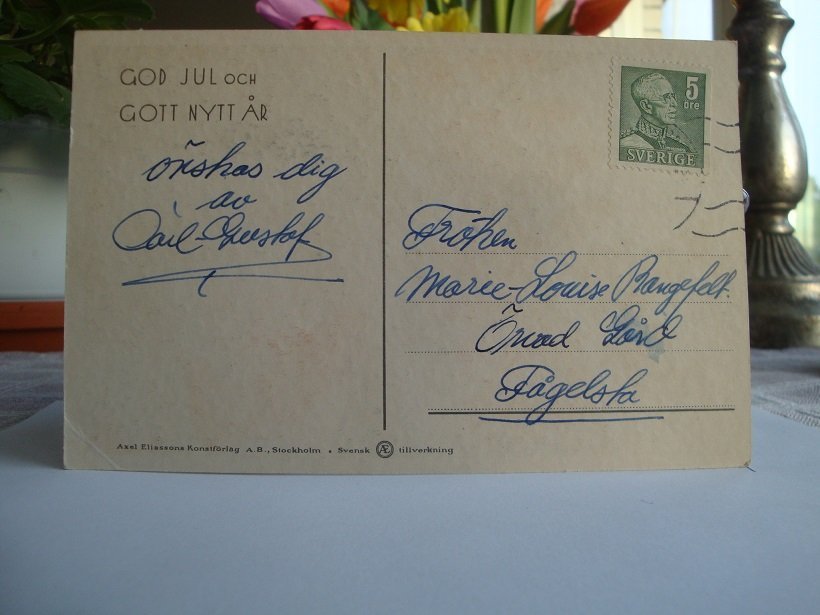 GOD JUL OCH
GOTT NYTT ÅR
önskas dig
av
Carl-Gustaf
5
öre
SVERIGE
Fröken
Marie-Louise Rangefelt.
Örvad Gård
Fågelsta
Axel Eliassons Konstförlag A.B., Stockholm • Svensk Æ tillverkning